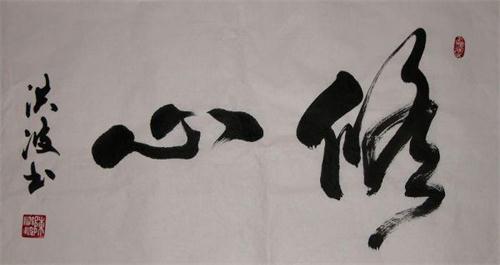 修心
洪波书